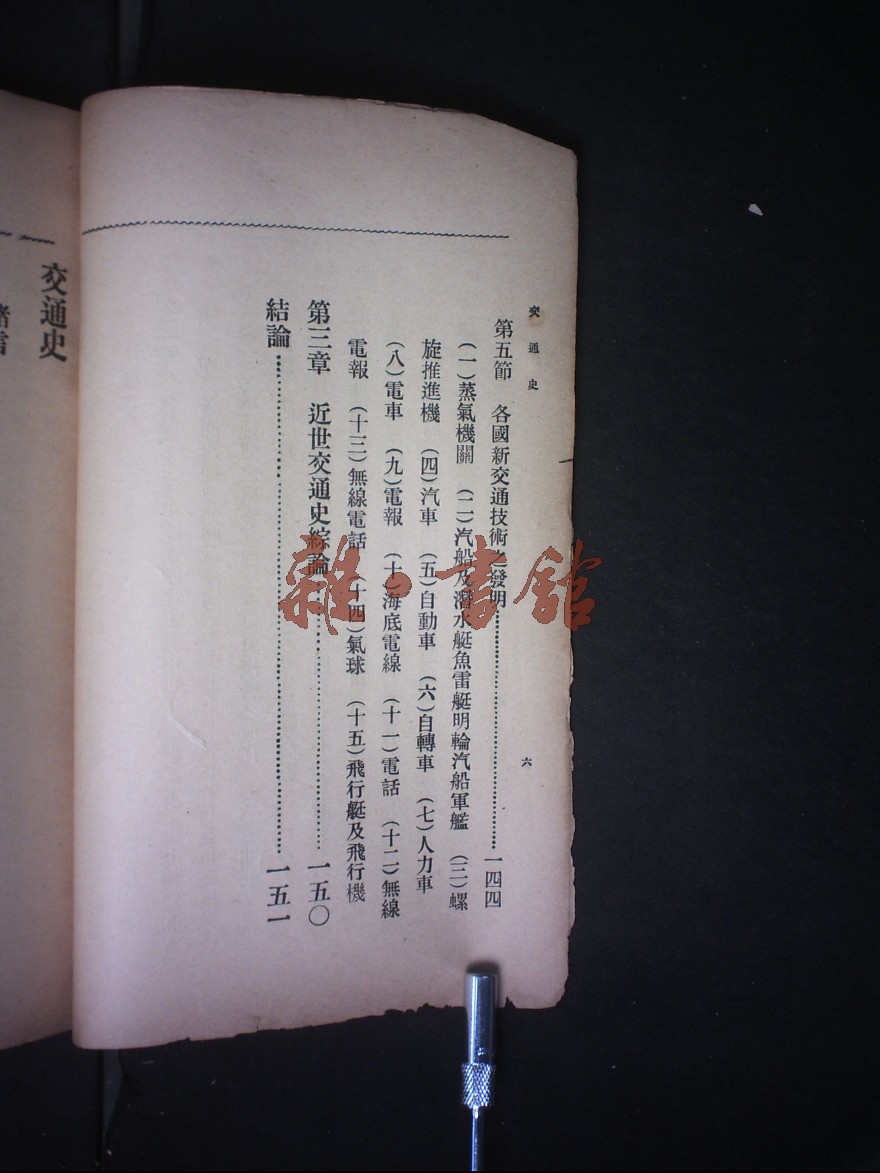 交通史
六
第五節　各國新交通技術之發明…………一四四
(一)蒸氣機關　(二)汽船及潛水艇魚雷艇明輪汽船軍艦　(三)螺
旋推進機　(四)汽車　(五)自動車　(六)自轉車　(七)人力車
(八)電車　(九)電報　(十)海底電線　(十一)電話　(十二)無線
電報　(十三)無線電話　(十四)氣球　(十五)飛行艇及飛行機
第三章　近世交通史綜論…………一五〇
結論…………一五一
交通史
雜·書館